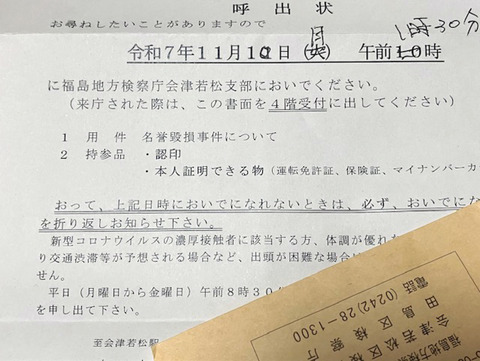 呼出状
お尋ねしたいことがありますので
令和7年11月10日(月) 午前10時30分
に福島地方検察庁会津若松支部においでください。
(来庁された際は、この書面を4階受付に出してください)
1 用件 名誉毀損事件について
2 持参品 ・認印
・本人証明できる物(運転免許証、保険証、マイナンバーカ
おって、上記日時においでになれないときは、必ず、おいでにな
を折り返しお知らせ下さい。
新型コロナウイルスの濃厚接触者に該当する方、体調が優れた
り交通渋滞等が予想される場合など、出頭が困難な場合に
せん。
平日(月曜日から金曜日)午前8時30
を申し出て下さい。
至会津若松駅
福島地方検
会津若松区検察庁
田島区検
電話 (0242)28-1300